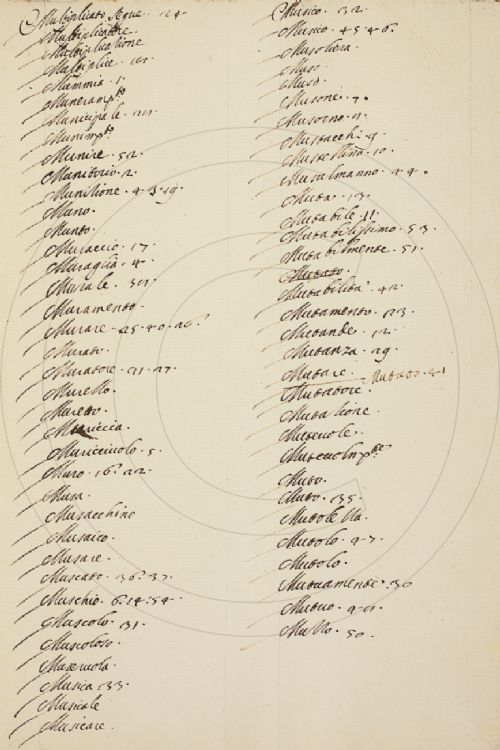 Multiplicato segue. 24
Multiplicatore
Multiplicatione
Multiplice
Mummia. 1.
Munerampto
Municipale
Munire. 52.
Munitorio. 2.
Munitione. 4.3.19.
Muno.
Munto.
Muraccio. 17.
Muraglia. 4.
Murale.
Muramento.
Murare. 25.40.26.
Murato.
Muratore. 21.27.
Muretto.
Mureto.
Muriccia.
Muricciuolo. 5.
Muro. 16. 22.
Musa.
Musacchino
Musaico.
Musare.
Muscato. 36.37.
Muschio. 6.14.54.
Muscolo. 31.
Muscoloso.
Museruola.
Musica. 33.
Musicale
Musicare.
Musico. 32.
Musico. 45.46.
Musoliera.
Muso.
Muso.
Musone. 7.
Musorno.
Mustacchi. 9.
Mustellino. 10.
Musulmanno. 44.
Muta. 13.
Mutabile. 11.
Mutabilissimo. 53.
Mutabilmente. 51.
Mutato.
Mutabilità. 42.
Mutamento. 23.
Mutande. 12.
Mutanza. 29.
Mutare. Mutato. 41
Mutatore.
Mutatione.
Mutevole.
Muto.
Muto. 135.
Mutolella.
Mutolo. 47.
Mutolo.
Mutuamente. 30
Mutuo.
Mutto. 50.